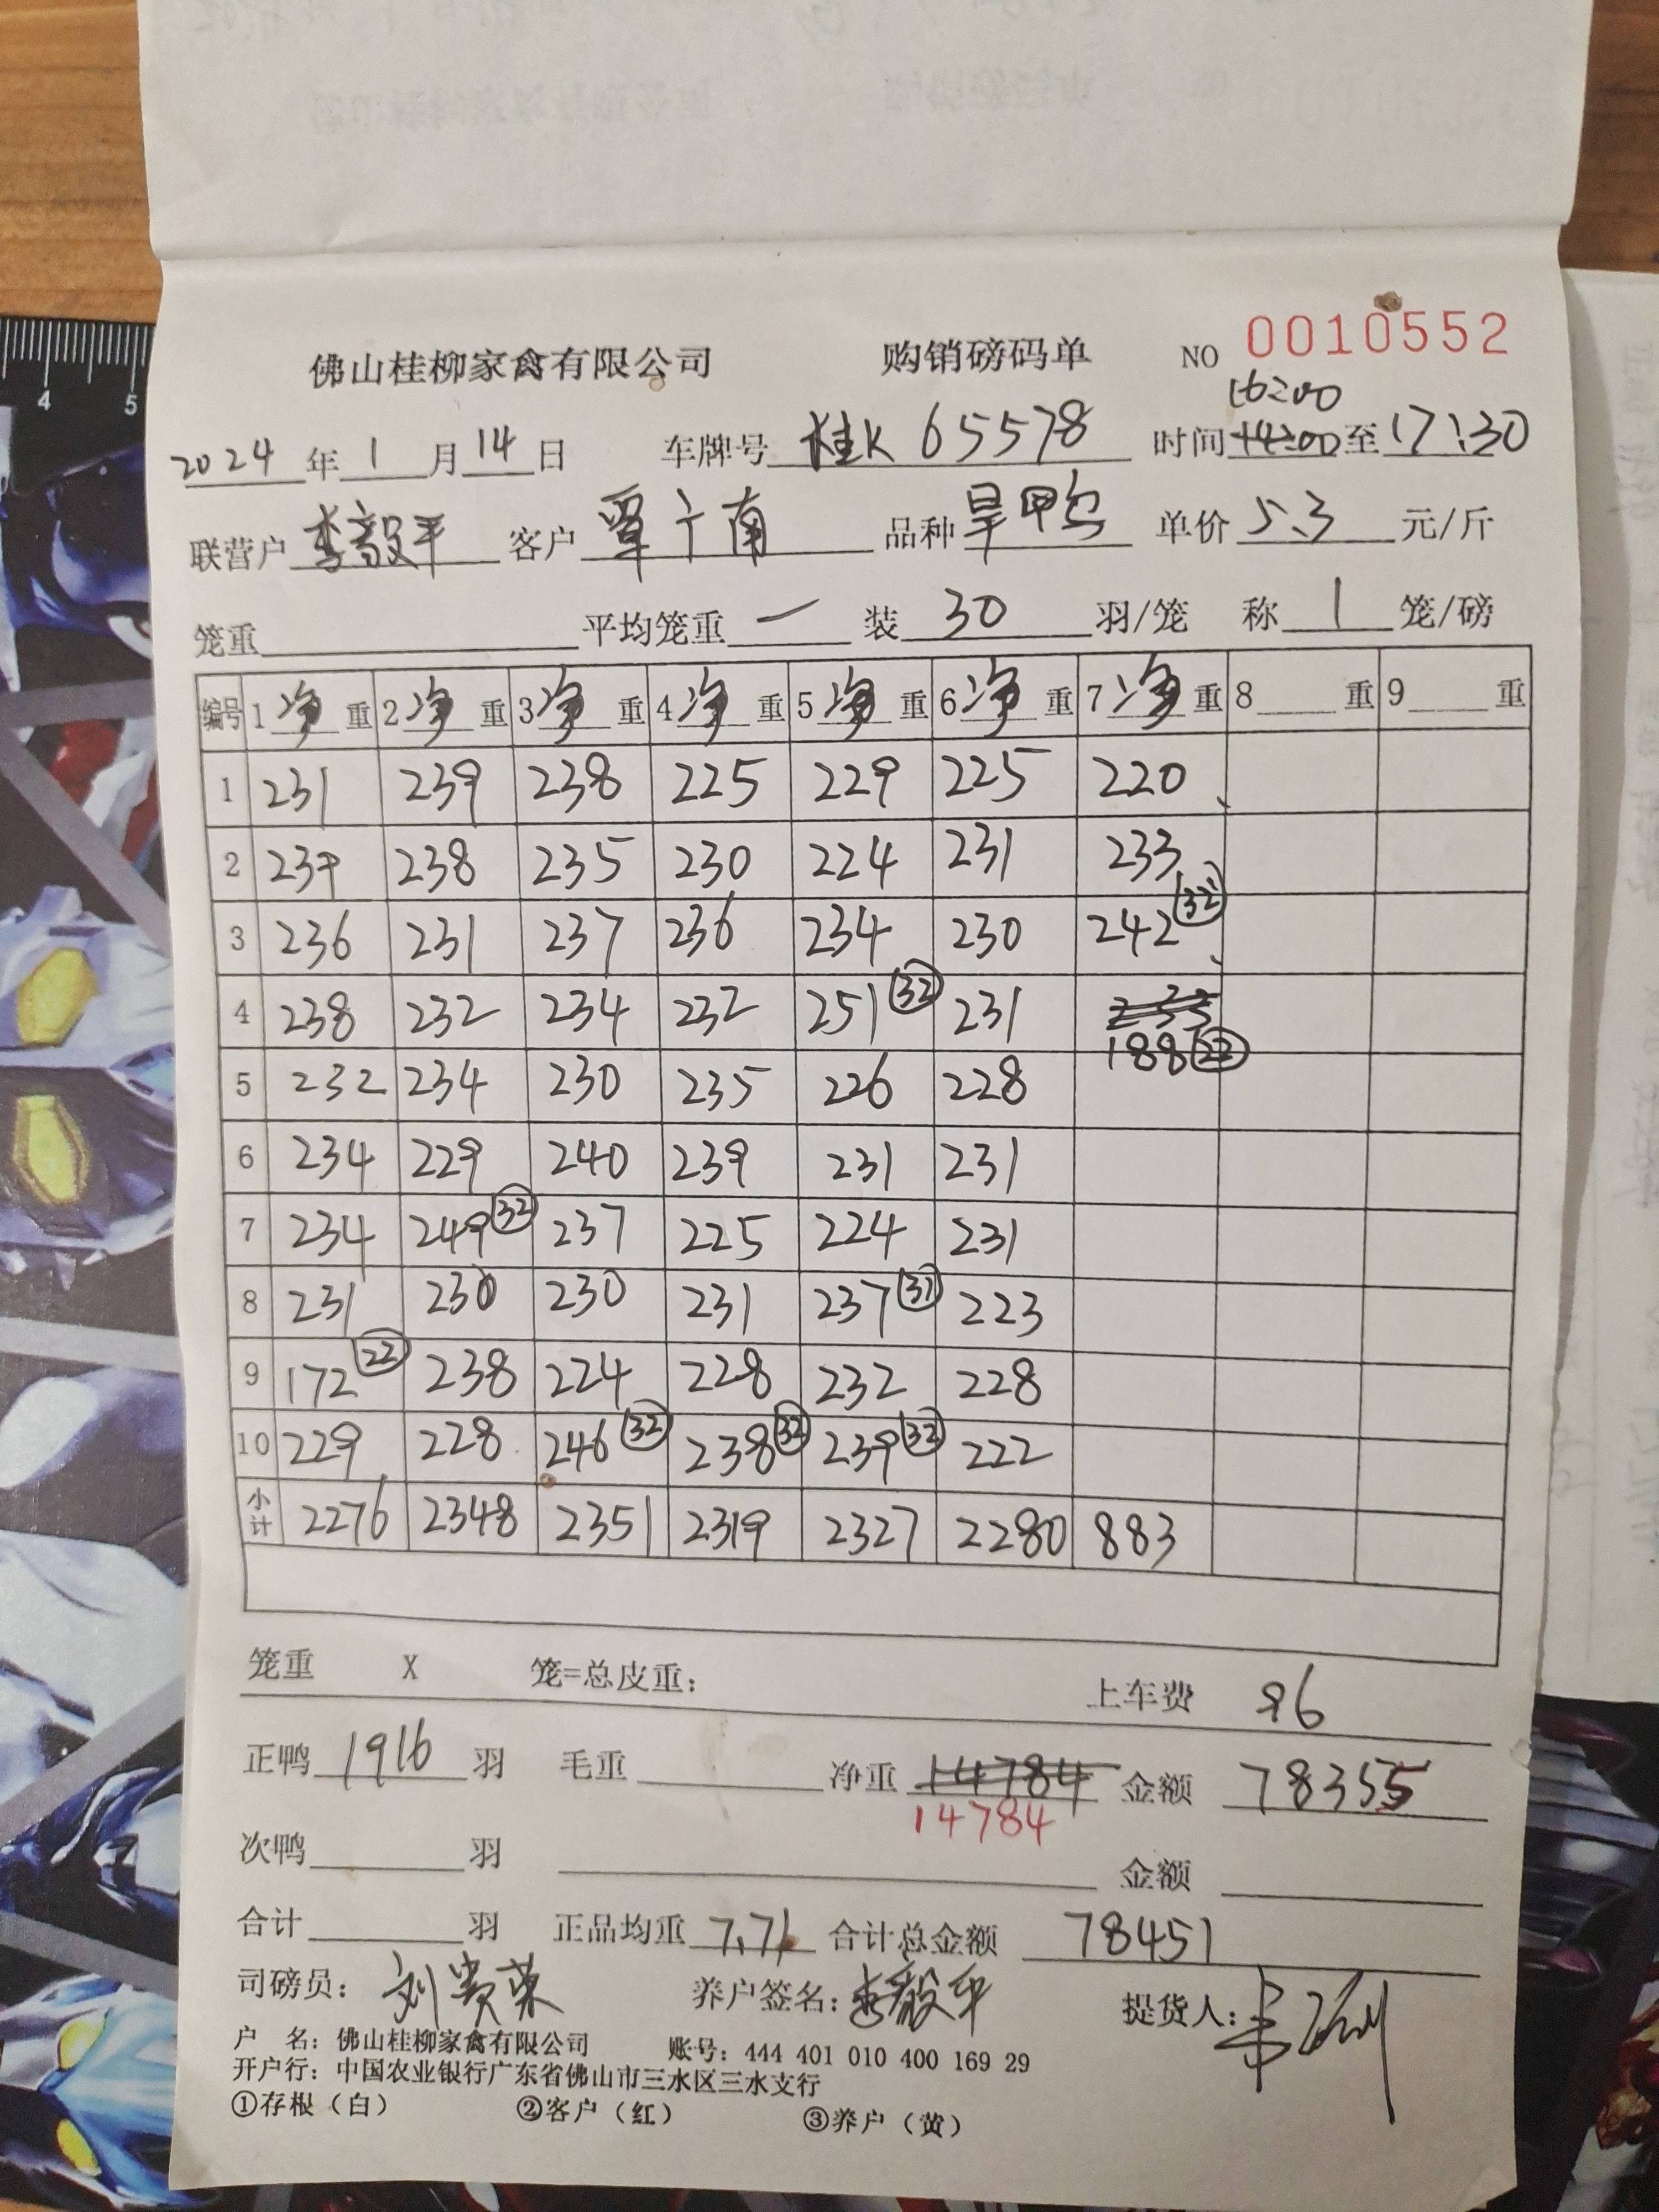 4 5
佛山桂柳家禽有限公司 购销磅码单 NO 0010552
16:00
2024年1月14日 车牌号 桂K 65578 时间 14:00 至 17:30
联营户 李毅平 客户 覃广南 品种 旱鸭 单价 5.3 元/斤
笼重 平均笼重 一 装 30 羽/笼 称 1 笼/磅
编号 1 净 重 2 净 重 3 净 重 4 净 重 5 净 重 6 净 重 7 净 重 8 重 9 重
1 231 239 238 225 229 225 220
2 239 238 235 230 224 231 233
3 236 231 237 236 234 230 242 32
4 238 232 234 232 251 32 231 235
188 22
5 232 234 230 235 226 228
6 234 229 240 239 231 231
7 234 249 32 237 225 224 231
8 231 230 230 231 237 31 223
9 172 22 238 224 228 232 228
10 229 228 246 32 238 32 239 32 222
小计 2276 2348 2351 2319 2327 2280 883
笼重 X 笼=总皮重: 上车费 96
正鸭 1916 羽 毛重 净重 14784 金额 78355
14784
次鸭 羽 金额
合计 羽 正品均重 7.71 合计总金额 78451
司磅员: 刘贵荣 养户签名: 李毅平 提货人:
户 名: 佛山桂柳家禽有限公司 账号: 444 401 010 400 169 29
开户行: 中国农业银行广东省佛山市三水区三水支行
①存根（白） ②客户（红） ③养户（黄）